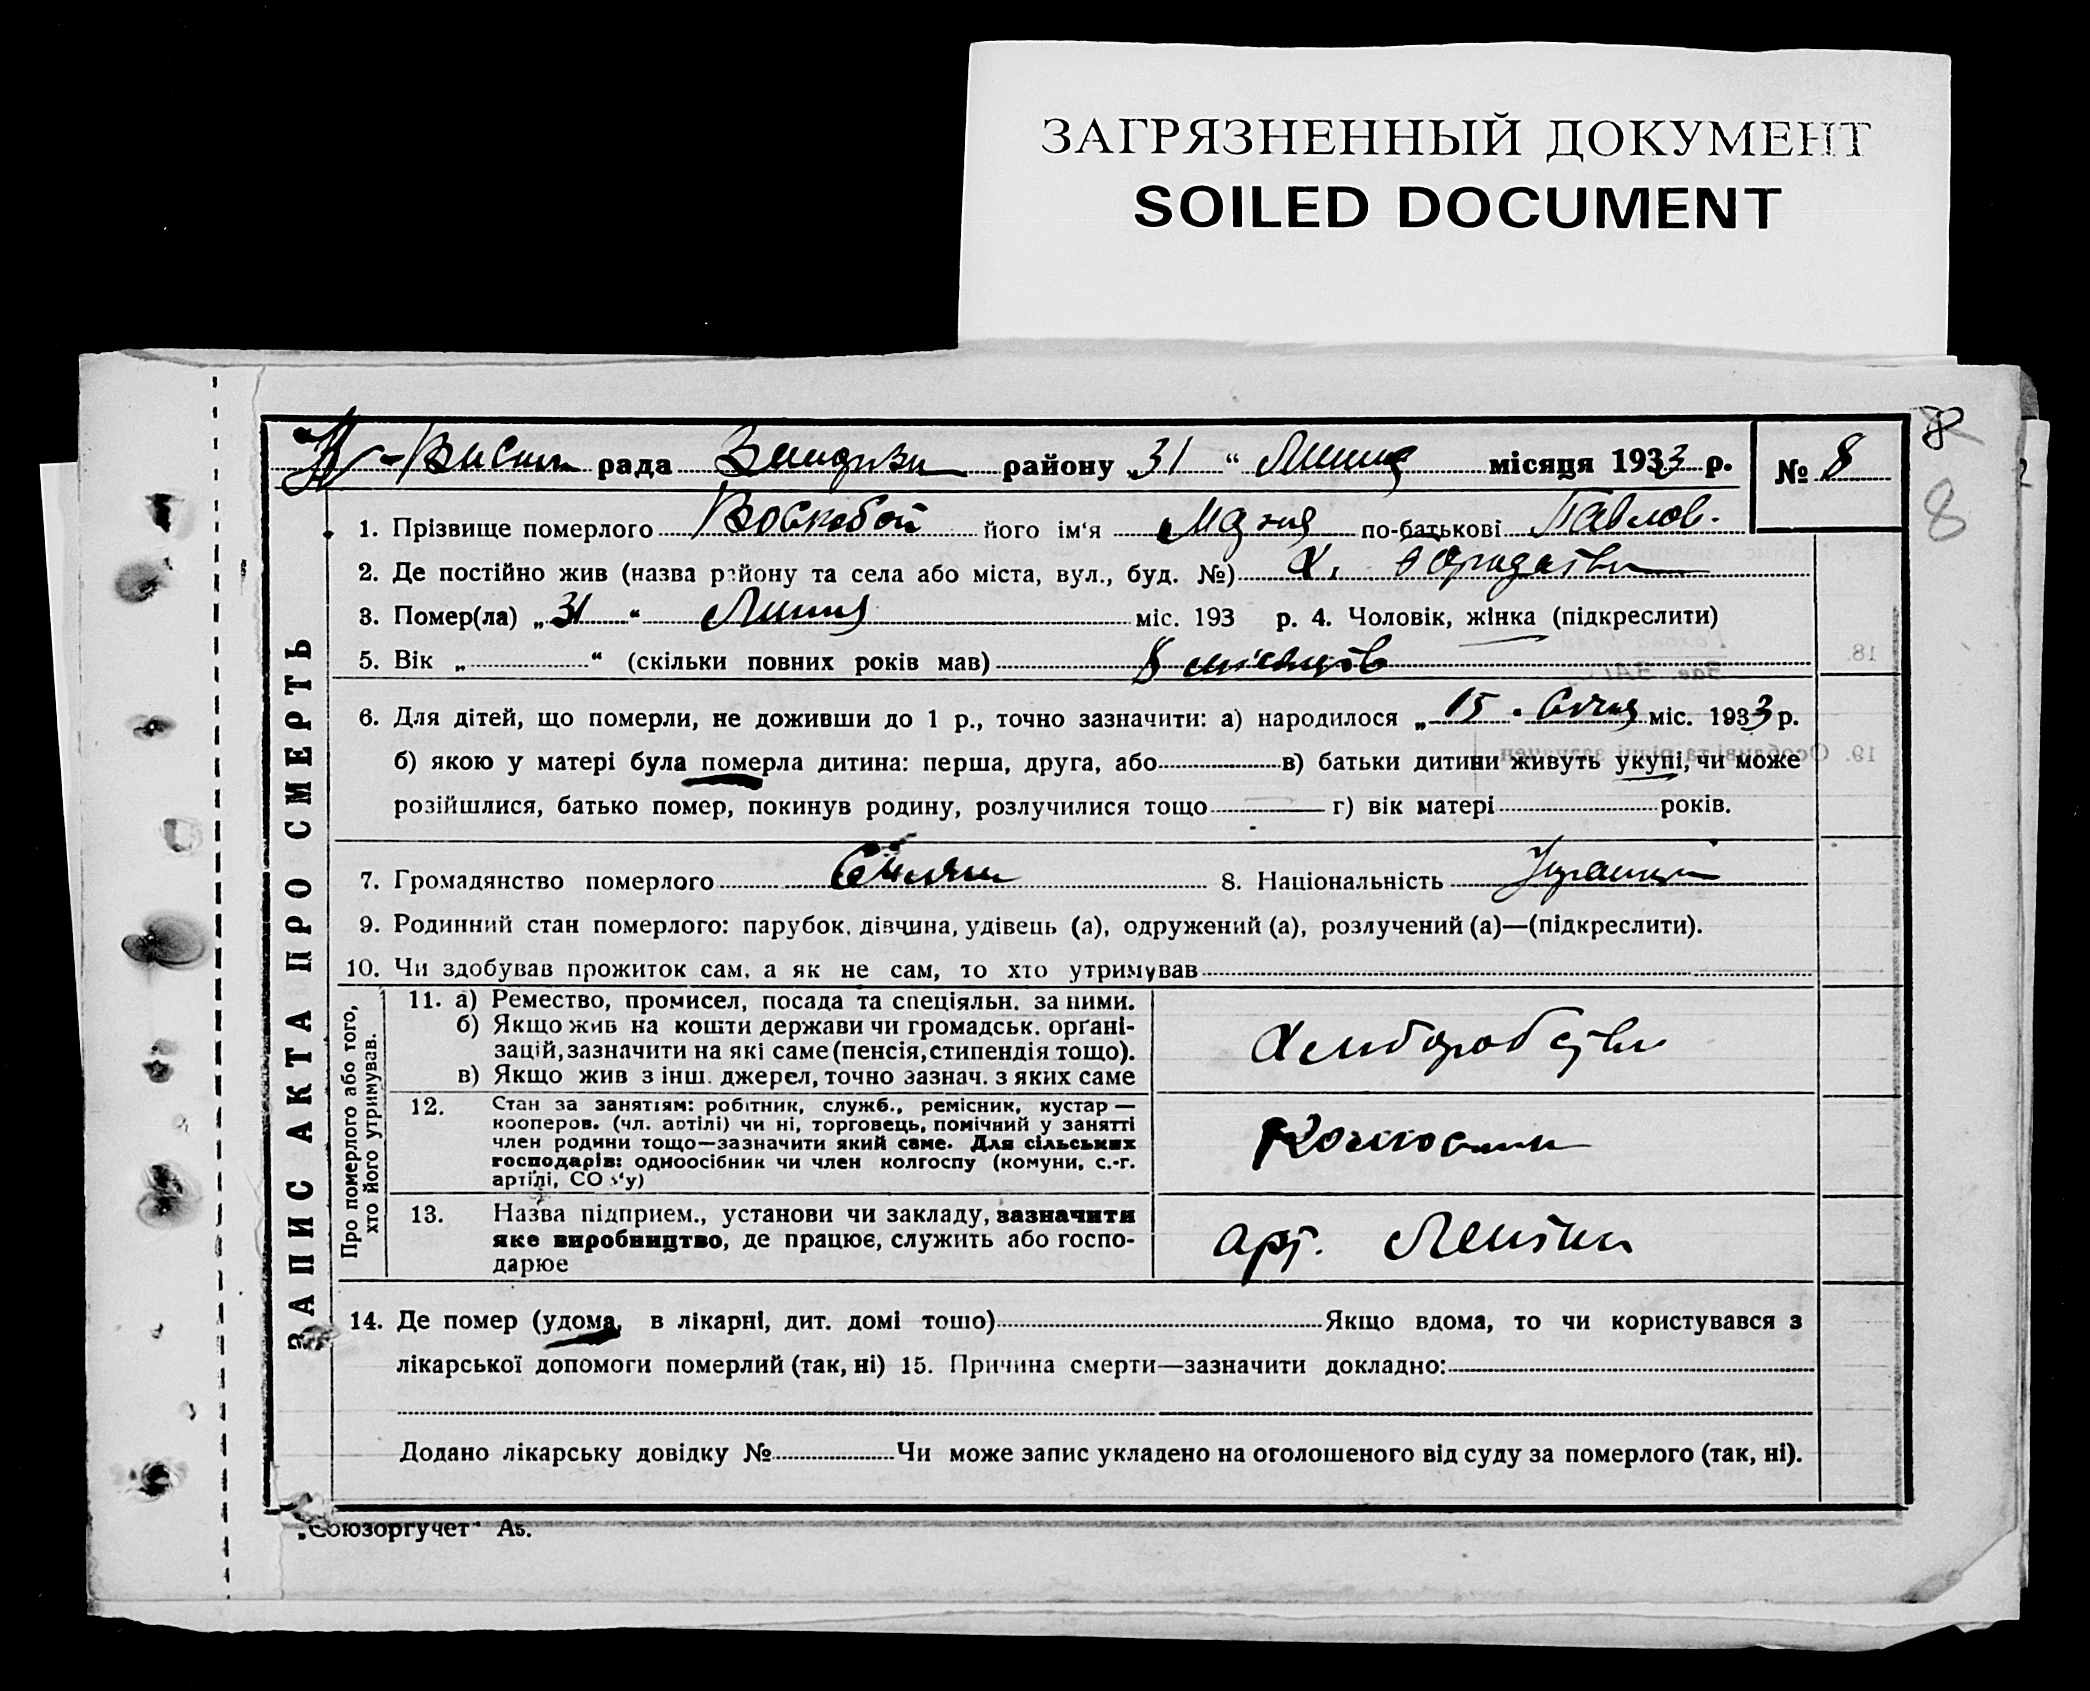 ЗАГРЯЗНЕННЫЙ ДОКУМЕНТ
SOILED DOCUMENT
8
рада району „31“ Липня місяця 1933 р. № 8
8
1. Прізвище померлого Воскобой його ім'я по-батькові Павлов.
2. Де постійно жив (назва району та села або міста, вул., буд. №) х.
3. Помер(ла) „31“ Липня міс. 193 р. 4. Чоловік, жінка (підкреслити)
5. Вік „ “ (скільки повних років мав) 8 місяців
6. Для дітей, що померли, не доживши до 1 р., точно зазначити: а) народилося „15“ Січня міс. 1933 р.
б) якою у матері була померла дитина: перша, друга, або в) батьки дитини живуть укупі, чи може
розійшлися, батько помер, покинув родину, розлучилися тощо г) вік матері років.
7. Громадянство померлого 8. Національність
9. Родинний стан померлого: парубок, дівчина, удівець (а), одружений (а), розлучений (а)—(підкреслити).
10. Чи здобував прожиток сам, а як не сам, то хто утримував
ЗАПИС АКТА ПРО СМЕРТЬ
Про померлого або того,
хто його утримував.
11. а) Ремество, промисел, посада та спеціяльн. за ними.
б) Якщо жив на кошти держави чи громадськ. орґані-
зацій, зазначити на які саме (пенсія, стипендія тощо).
в) Якщо жив з інш. джерел, точно зазнач. з яких саме
Хліборобство
12. Стан за заняттям: робітник, служб., ремісник, кустар —
кооперов. (чл. артілі) чи ні, торговець, помічний у занятті
член родини тощо—зазначити який саме. Для сільських
господарів: одноосібник чи член колгоспу (комуни, с.-г.
артілі, СО у)
13. Назва підприєм., установи чи закладу, зазначити
яке виробництво, де працює, служить або госпо-
дарює
арт. Леніна
14. Де помер (удома, в лікарні, дит. домі тощо) Якщо вдома, то чи користувався з
лікарської допомоги померлий (так, ні) 15. Причина смерти—зазначити докладно:
Додано лікарську довідку № Чи може запис укладено на оголошеного від суду за померлого (так, ні).
„Союзоргучет“ А5.